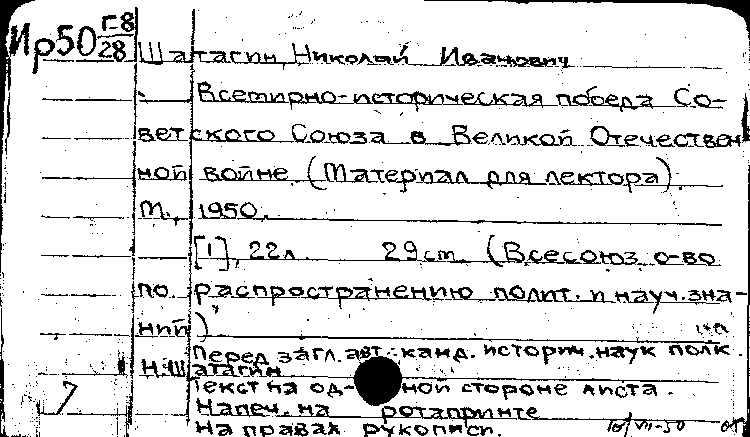 Ир50 Г-8
28
Шатагин, Николай Иванович
Всемирно-историческая победа Со-
ветского Союза в Великой Отечествен
ной войне. (Материал для лектора).
М., 1950.
[1], 22л. 29 см. (Всесоюз. о-во
по распространению полит. и науч. зна-
ний)
Перед загл. авт.: канд. историч. наук полк.
Н. Шатагин
Текст на од- ной стороне листа.
7
Напеч. на ротапринте
На правах рукописи.